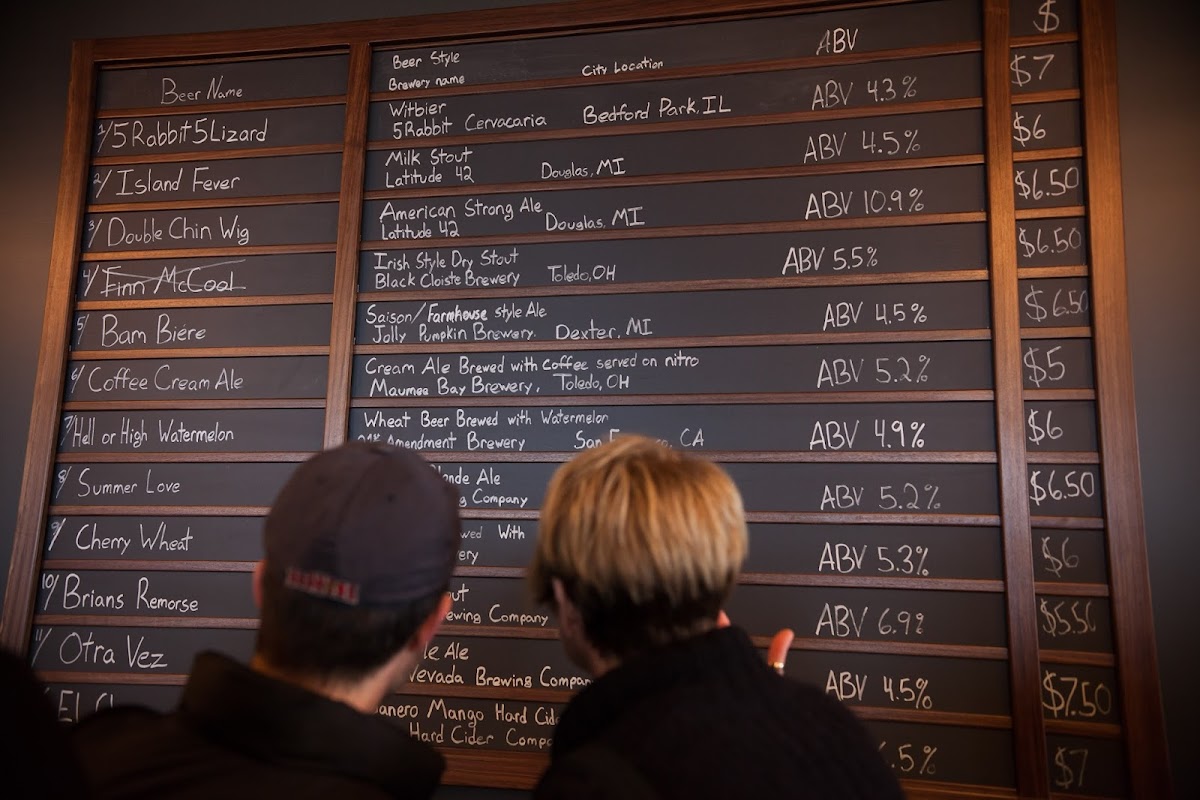 Beer Name
Beer Style
Brewery name City Location ABV $
1/ 5 Rabbit 5 Lizard
Witbier
5 Rabbit Cervacaria Bedford Park, IL ABV 4.3% $7
2/ Island Fever
Milk Stout
Latitude 42 Douglas, MI ABV 4.5% $6
3/ Double Chin Wig
American Strong Ale
Latitude 42 Douglas, MI ABV 10.9% $6.50
4/ Finn McCool
Irish Style Dry Stout
Black Cloiste Brewery Toledo, OH ABV 5.5% $6.50
5/ Bam Biere
Saison/Farmhouse style Ale
Jolly Pumpkin Brewery. Dexter, MI ABV 4.5% $6.50
6/ Coffee Cream Ale
Cream Ale Brewed with Coffee served on nitro
Maumee Bay Brewery, Toledo, OH ABV 5.2% $5
7/ Hell or High Watermelon
Wheat Beer Brewed with Watermelon
Amendment Brewery San CA ABV 4.9% $6
8/ Summer Love
Ale
Company ABV 5.2% $6.50
9/ Cherry Wheat
With
ABV 5.3% $6
10/ Brians Remorse
Company ABV 6.9% $5.50
11/ Otra Vez
Ale
Nevada Brewing Company ABV 4.5% $7.50
El
Mango Hard
Hard Cider .5% $7